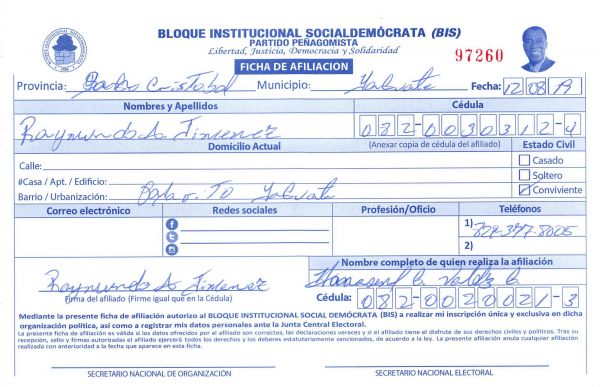 BLOQUE INSTITUCIONAL SOCIALDEMÓCRATA (BIS)
PARTIDO PEÑAGOMISTA
Libertad, Justicia, Democracia y Solidaridad
97260
FICHA DE AFILIACION
Provincia: Cristobal Municipio: Fecha: 12/08/19
Nombres y Apellidos Cédula
Raymundo A. Jimenez 082-0030312-4
Domicilio Actual (Anexar copia de cédula del afiliado) Estado Civil
Calle: Casado
#Casa / Apt. / Edificio: Soltero
Barrio / Urbanización: Conviviente
Correo electrónico Redes sociales Profesión/Oficio Teléfonos
1) 829-397-8005
2)
Nombre completo de quien realiza la afiliación
Raymundo A Jimenez
Firma del afiliado (Firme igual que en la Cédula) Cédula: 082-0020021-3
Mediante la presente ficha de afiliación autorizo al BLOQUE INSTITUCIONAL SOCIAL DEMÓCRATA (BIS) a realizar mi inscripción única y exclusiva en dicha
organización política, así como a registrar mis datos personales ante la Junta Central Electoral.
La presente ficha de afiliación es válida si los datos ofrecidos por el afiliado son correctos, las declaraciones veraces y si el afiliado tiene el disfrute de sus derechos civiles y políticos. Tras su
recepción, sello y firmas autorizadas el afiliado ejercerá todos los derechos y los deberes estatutariamente sancionados, de acuerdo a la ley. La presente afiliación anula cualquier afiliación
realizada con anterioridad a la fecha que aparece en esta ficha.
SECRETARIO NACIONAL DE ORGANIZACIÓN SECRETARIO NACIONAL ELECTORAL